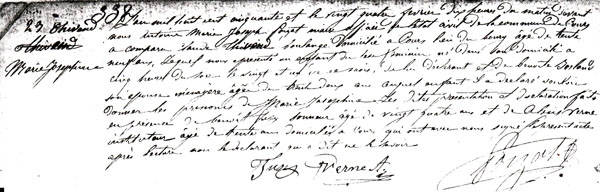 338
23. Thivend
Marie Josephine
L'an mil huit cent cinquante et le vingt quatre février dix heures du matin devant
nous Antoine Marie Joseph maire officier de l'état civil de la commune de Cours
a comparu Claude Thivend boulanger domicilié à Cours lieu du bourg âgé de trente
neuf ans, lequel nous a présenté un enfant de sexe féminin né dans son domicile à
cinq heures du soir le vingt et un de ce mois, de lui déclarant et de Benoite
son épouse ménagère âgée de trente deux ans auquel enfant il a déclaré vouloir
donner les prénoms de Marie Josephine. Les dites présentation et déclaration faites
en présence de Benoit âgé de vingt quatre ans et de Verne
instituteur âgé de trente ans domiciliés à Cours qui ont avec nous signé le présent acte
après lecture non le déclarant qui a dit ne le savoir
Verne